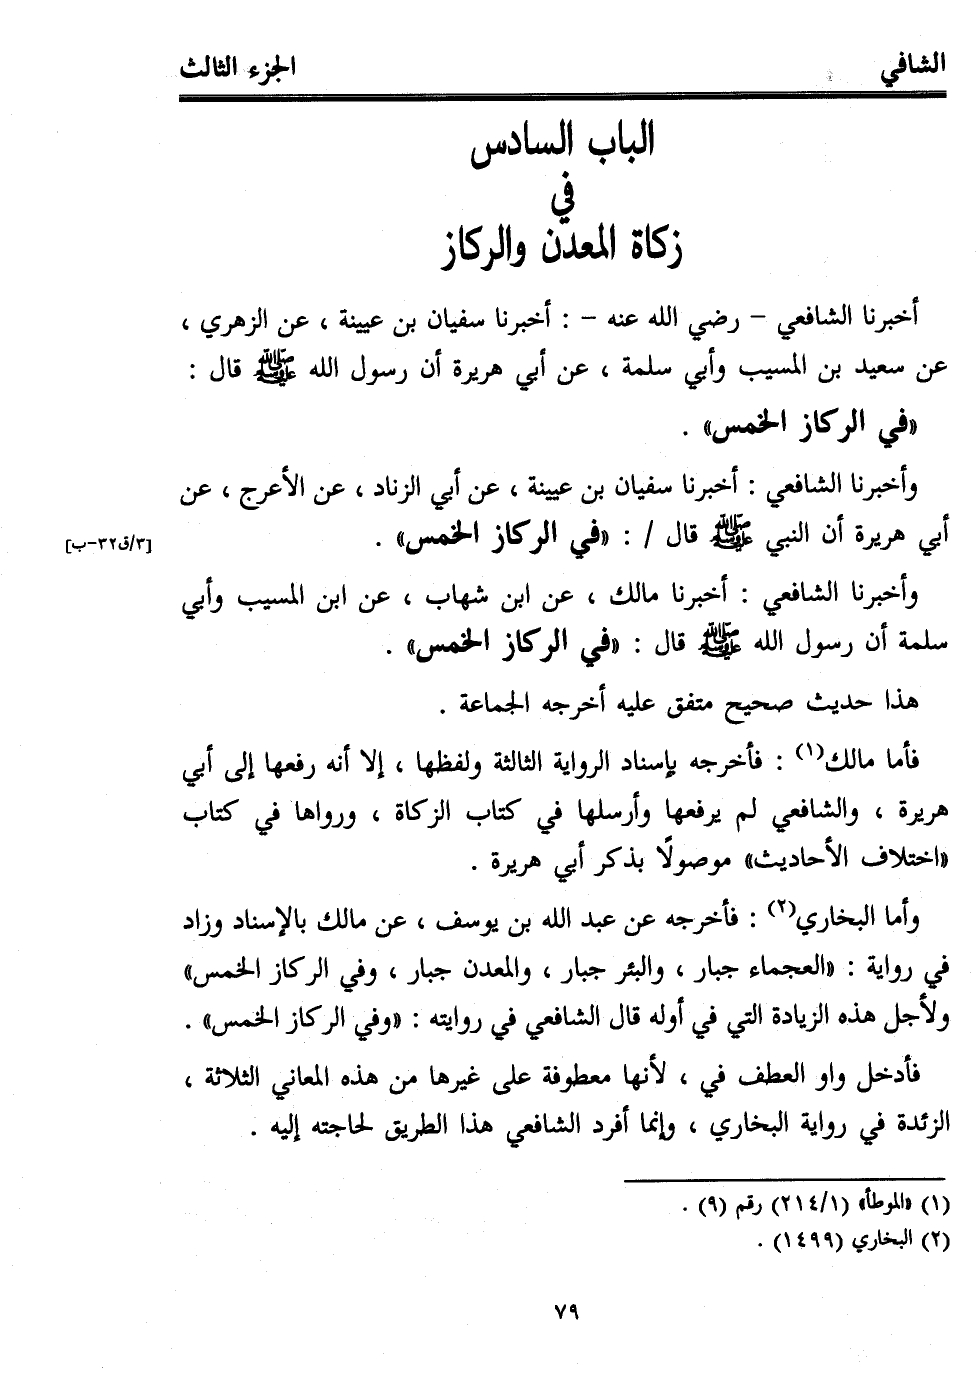 الشافي الجزء الثالث
الباب السادس
في
زكاة المعدن والركاز
أخبرنا الشافعي - رضي الله عنه - : أخبرنا سفيان بن عيينة ، عن الزهري ،
عن سعيد بن المسيب وأبي سلمة ، عن أبي هريرة أن رسول الله ﷺ قال :
«في الركاز الخمس» .
وأخبرنا الشافعي : أخبرنا سفيان بن عيينة ، عن أبي الزناد ، عن الأعرج ، عن
أبي هريرة أن النبي ﷺ قال / : «في الركاز الخمس» . [٣/ق٣٢-ب]
وأخبرنا الشافعي : أخبرنا مالك ، عن ابن شهاب ، عن ابن المسيب وأبي
سلمة أن رسول الله ﷺ قال : «في الركاز الخمس» .
هذا حديث صحيح متفق عليه أخرجه الجماعة .
فأما مالك(١) : فأخرجه بإسناد الرواية الثالثة ولفظها ، إلا أنه رفعها إلى أبي
هريرة ، والشافعي لم يرفعها وأرسلها في كتاب الزكاة ، ورواها في كتاب
«اختلاف الأحاديث» موصولًا بذكر أبي هريرة .
وأما البخاري(٢) : فأخرجه عن عبد الله بن يوسف ، عن مالك بالإسناد وزاد
في رواية : «العجماء جبار ، والبئر جبار ، والمعدن جبار ، وفي الركاز الخمس»
ولأجل هذه الزيادة التي في أوله قال الشافعي في روايته : «وفي الركاز الخمس» .
فأدخل واو العطف في ، لأنها معطوفة على غيرها من هذه المعاني الثلاثة ،
الزئدة في رواية البخاري ، وإنما أفرد الشافعي هذا الطريق لحاجته إليه .
(١) «الموطأ» (٢١٤/١) رقم (٩) .
(٢) البخاري (١٤٩٩) .
٧٩